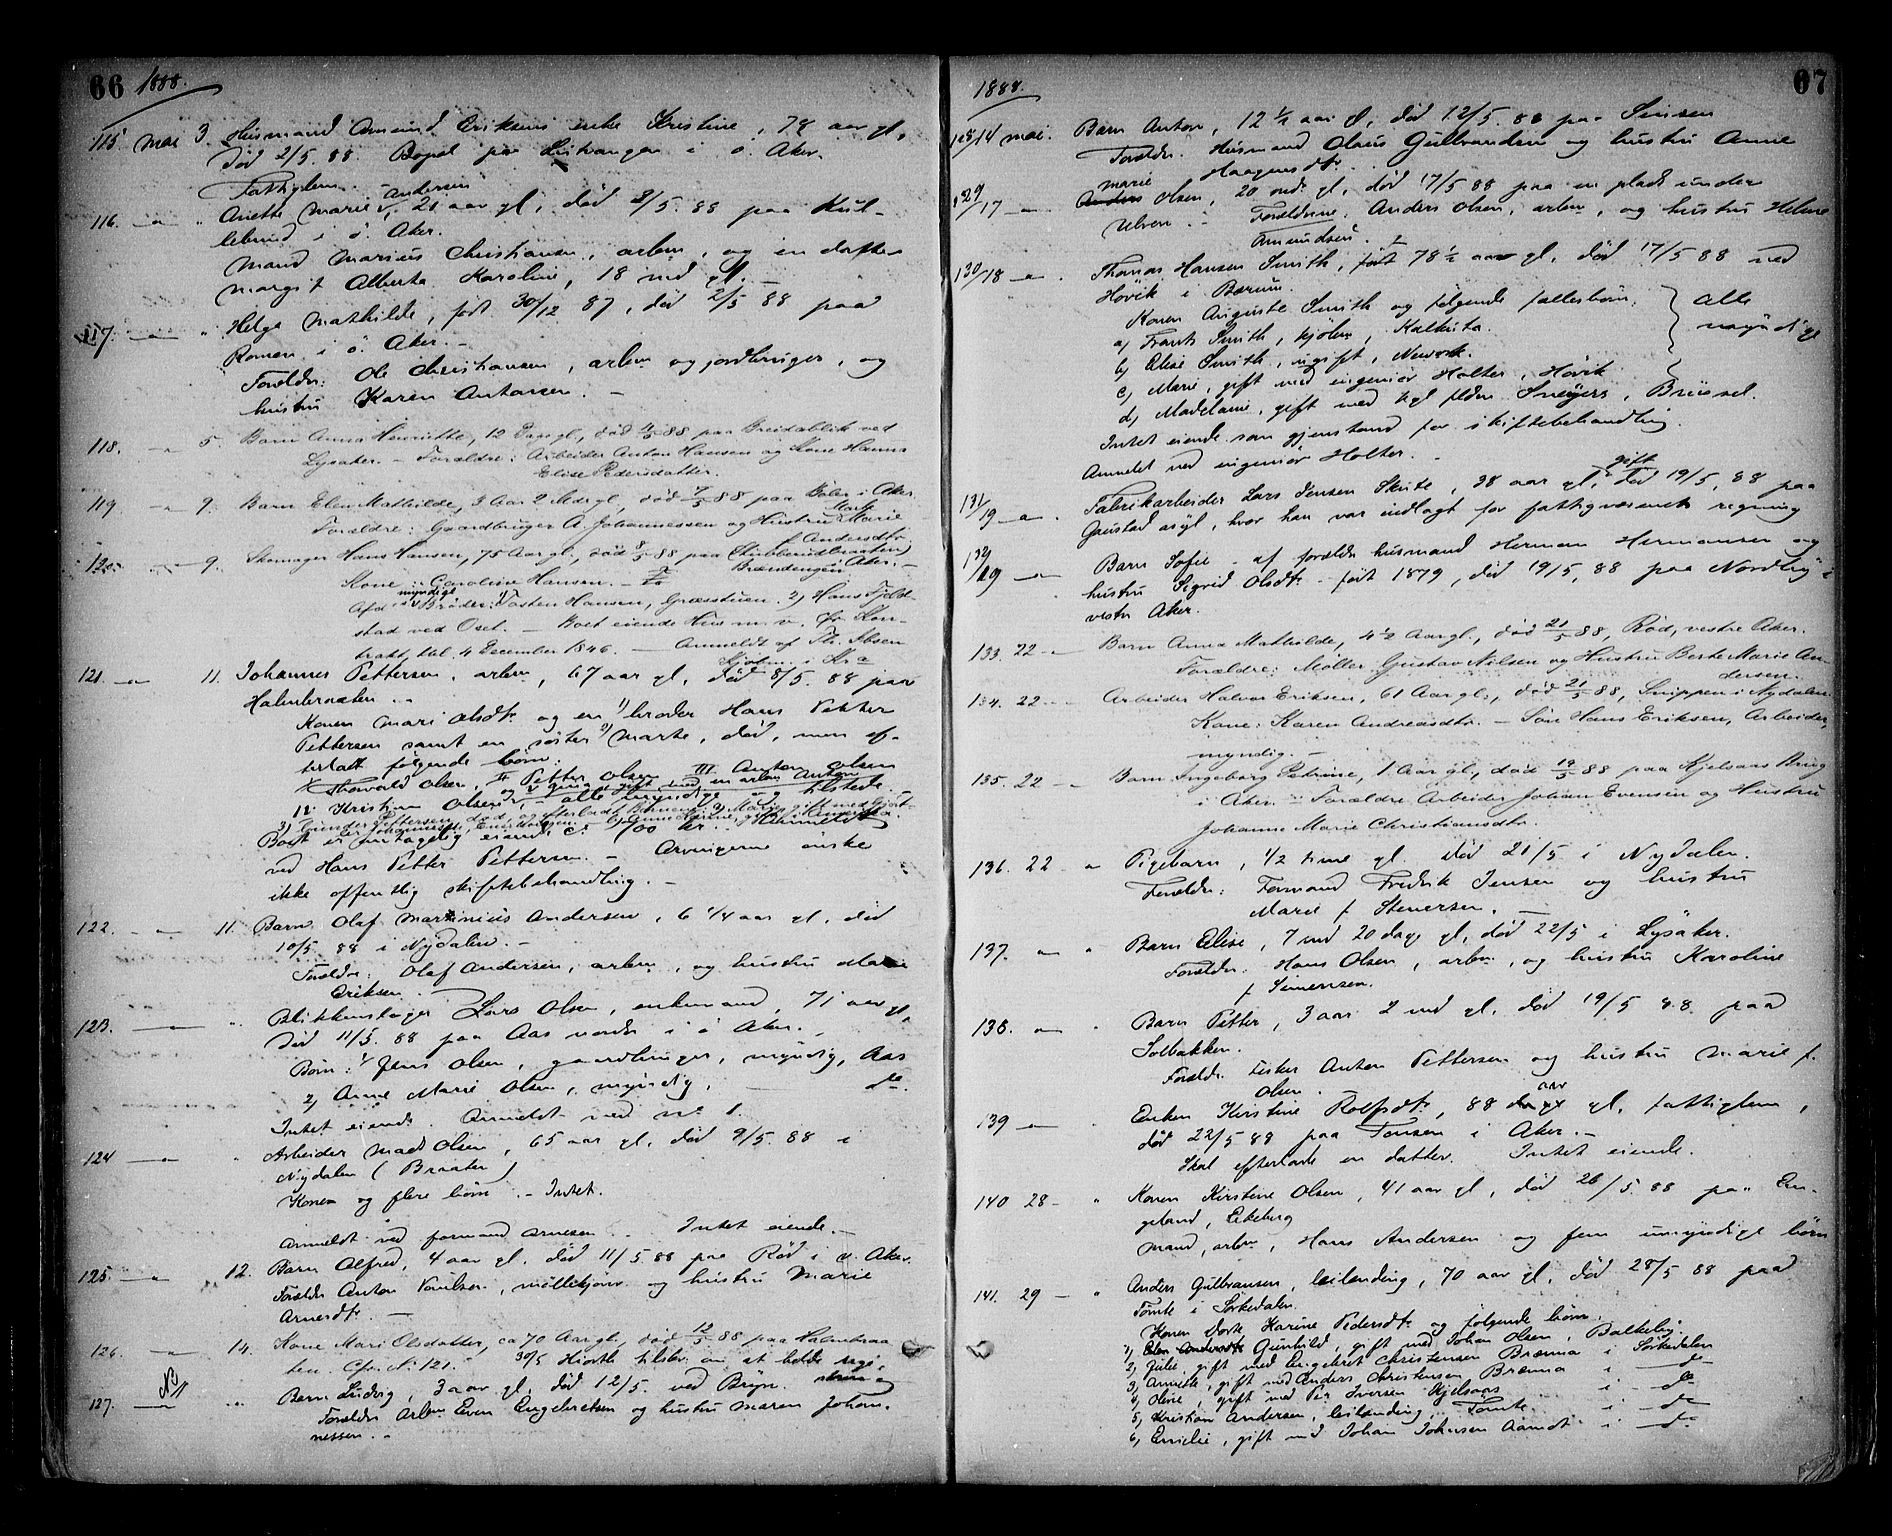 66 1888.
115 mai 3. Husmand Amund Eriksens enke Kristine, 78 aar gl,
død 2/5. 88. Bopæl paa i ö. Aker.
Fattiglem. Andersen
116. — " Anette Marie, 21 aar gl, død 2/5. 88 paa Kul-
lebund i ö. Aker.
Mand Marius Christiansen, arbm, og en datter
Margit Alberta Karoline, 18 md gl. —
117. — " Helga Mathilde, født 30/12 87, død 2/5 88 paa
i ö. Aker. —
Forældre: Ole Christiansen, arbm og jordbruger, og
hustru Karen Antonsen. —
118. — 5. Barn Anna Henriette, 12 Dage gl, død 4/5 88 paa Breidablik ved
Lysaker. — Forældre: Arbeider Anton Hansen og Kone Hanna
Elise Pedersdatter.
119 — 9. Barn Elen Mathilde, 3 Aar 2 Mdr gl, død 7/5 88 paa Bøler i Aker
Forældre: Gaardbruger A. Johannessen og Hustru Marie
f. Andersdtr.
120. — 9. Skomager Hans Hansen, 75 Aar gl, død 8/5 88 paa Stubberudbraaten,
Brændengen i Aker. —
Kone: Caroline Hansen. —
myndige
Afd's Brødre: 1) Tosten Hansen, Græsstuen. 2) Hans Fjeld-
stad ved Oset. — Boet eiende Hus m. v. efter Kon-
trakt, thl. 4 December 1846. — Anmeldt af Th. Absen
121 — 11. Johannes Pettersen, arbm, 67 aar gl, død 8/5. 88 paa
Halmbraaten. —
Konen Mari Olsdtr og en 1) broder Hans Petter
Pettersen samt en søster 2) Marte, død, men ef-
terladt følgende børn:
I Thorvald Olsen, II Petter Olsen III Anton Olsen
IV Kristian Olsen, — alle myndige og tilstede.
Boet er antagelig eiende c. 400 kr. Anmeldt
ved Hans Petter Pettersen. — Arvingerne ønske
ikke offentlig skiftebehandling. —
122. — 11. Barn Olaf Martinius Andersen, 6 1/4 aar gl, død
10/5 88 i Nydalen. —
Forældre: Olaf Andersen, arbm, og hustru Marie
Eriksen.
123. — " Blikkenslager Lars Olsen, enkemand, 71 aar gl,
død 11/5. 88 paa Aas nordre i ö Aker.
Børn: 1/ Jens Olsen, gaardbruger, myndig, Aas
2) Anne Marie Olsen, myndig, — do.
Intet eiende. Anmeldt ved no 1.
124 — " Arbeider Mads Olsen, 65 aar gl, død 9/5. 88 i
Nydalen (Braaten)
Konen og flere børn. — Intet.
Anmeldt ved formand Arnesen. Intet eiende. —
125. — 12. Barn Alfred, 4 aar gl. død 11/5. 88 paa Rød i v. Aker.
Forældre Anton Poulsen, møllekjører og hustru Marie
Arnesdtr —
126. — 14. Kone Mari Olsdatter, ca 70 Aar gl, død 12/5 88 paa Halmbraa-
ten. Cfr. No 121. 30/5
127. — " Barn Ludvig, 3 aar gl, død 12/5. ved Bryn.
Forældre Arbm Even Engebretsen og hustru Maren Johan-
nessen. —
1888. 67
128/14 mai. Barn Anton, 12 1/2 aar, død 12/5. 88 paa Sinsen
Forældre. Husmand Olaus Gulbrandsen og hustru Anne
Marie Haagensdtr.
129/17 — Olsen, 20 mdr gl, død 17/5 88 paa en plads under
Ulven. — Forældrene. Anders Olsen, arbm, og hustru Helene
Amundsen.
130/18 — Thomas Hansen Smith, 78 1/2 aar gl, død 17/5 88 ved
Høvik i Bærum.
Konen Auguste Smith og følgende fællesbørn:
a) Frants Smith, kjøbm, Kalkuta.
b) Elise Smith, ugift, Newyork.
c) Marie, gift med ingeniør Holter, Høvik
d) Madelaine, gift med Sneyers, Brüssel.
alle
myndige
Intet eiende som gjenstand for skiftebehandling.
Anmeldt ved ingeniør Holter. —
gift
131/19 — Fabrikarbeider Lars Jensen Skute, 38 aar gl, død 19/5. 88 paa
Gaustad asyl, hvor han var indlagt for fattigvæsenets regning
132/19 — Barn Sofie — af forældre husmand Herman Hermansen og
hustru Sigrid Olsdtr — født 1879, død 19/5. 88 paa Nordby i
vestre Aker.
133. 22 — Barn Anna Mathilde, 4 1/2 Aar gl., død 21/5 88, Rød, vestre Aker.
Forældre: Møller Gustav Nilsen og Hustru Berte Marie An-
dersen.
134. 22 — Arbeider Halvor Eriksen, 61 Aar gl., død 21/5 88, Snippen i Nydalen.
Kone: Karen Andreasdtr. — Søn Hans Eriksen, Arbeider,
myndig. —
135. 22 — Barn Ingeborg Petrine, 1 Aar gl, død 19/5 88 paa Kjelsaas Brug
i Aker. — Forældre Arbeider Johan Evensen og Hustru
Johanne Marie Christiansdtr.
136. 22 " Pigebarn, 1/2 time gl. død 21/5 i Nydalen.
Forældre: Formand Fredrik Jensen og hustru
Marie f. Stenersen. —
137. — " Barn Elise, 7 md 20 dage gl, død 22/5 i Lysaker.
Forældre. Hans Olsen, arbm, og hustru Karoline
f. Simensen.
138. — " Barn Petter, 3 aar 2 md gl, død 19/5 88 paa
Solbakken.
Forældre. Fisker Anton Pettersen og hustru Marie f.
Olsen.
aar
139 — " Enken Kirstine Rolfsdtr, 88 gl, fattiglem,
død 22/5 88 paa Tonsen i Aker. —
Skal efterlade en datter. Intet eiende.
140 28 — " Konen Kirstine Olsen, 41 aar gl, død 26/5. 88 paa En-
geland, Ekeberg
Mand, arbm, Hans Andersen og fem umyndige børn
141. 29 — " Anders Gulbransen, leilending, 70 aar gl, død 28/5 88 paa
Tømte i Sørkedalen.
Konen Dorte Karine Pedersdtr og følgende børn:
1) Gunhild, gift med Johan Olsen, Balkeby
2) Julie, gift med Engebret Christensen Brænna i Sørkedalen
3) Annette, gift med Anders Christensen Brænna i — do
4) Oline, gift med Per Iversen Kjelsaas i — do
5) Kristian Andersen, leilending, Tømte i — do
6) Emilie, gift med Johan Johnsen Aamodt i — do